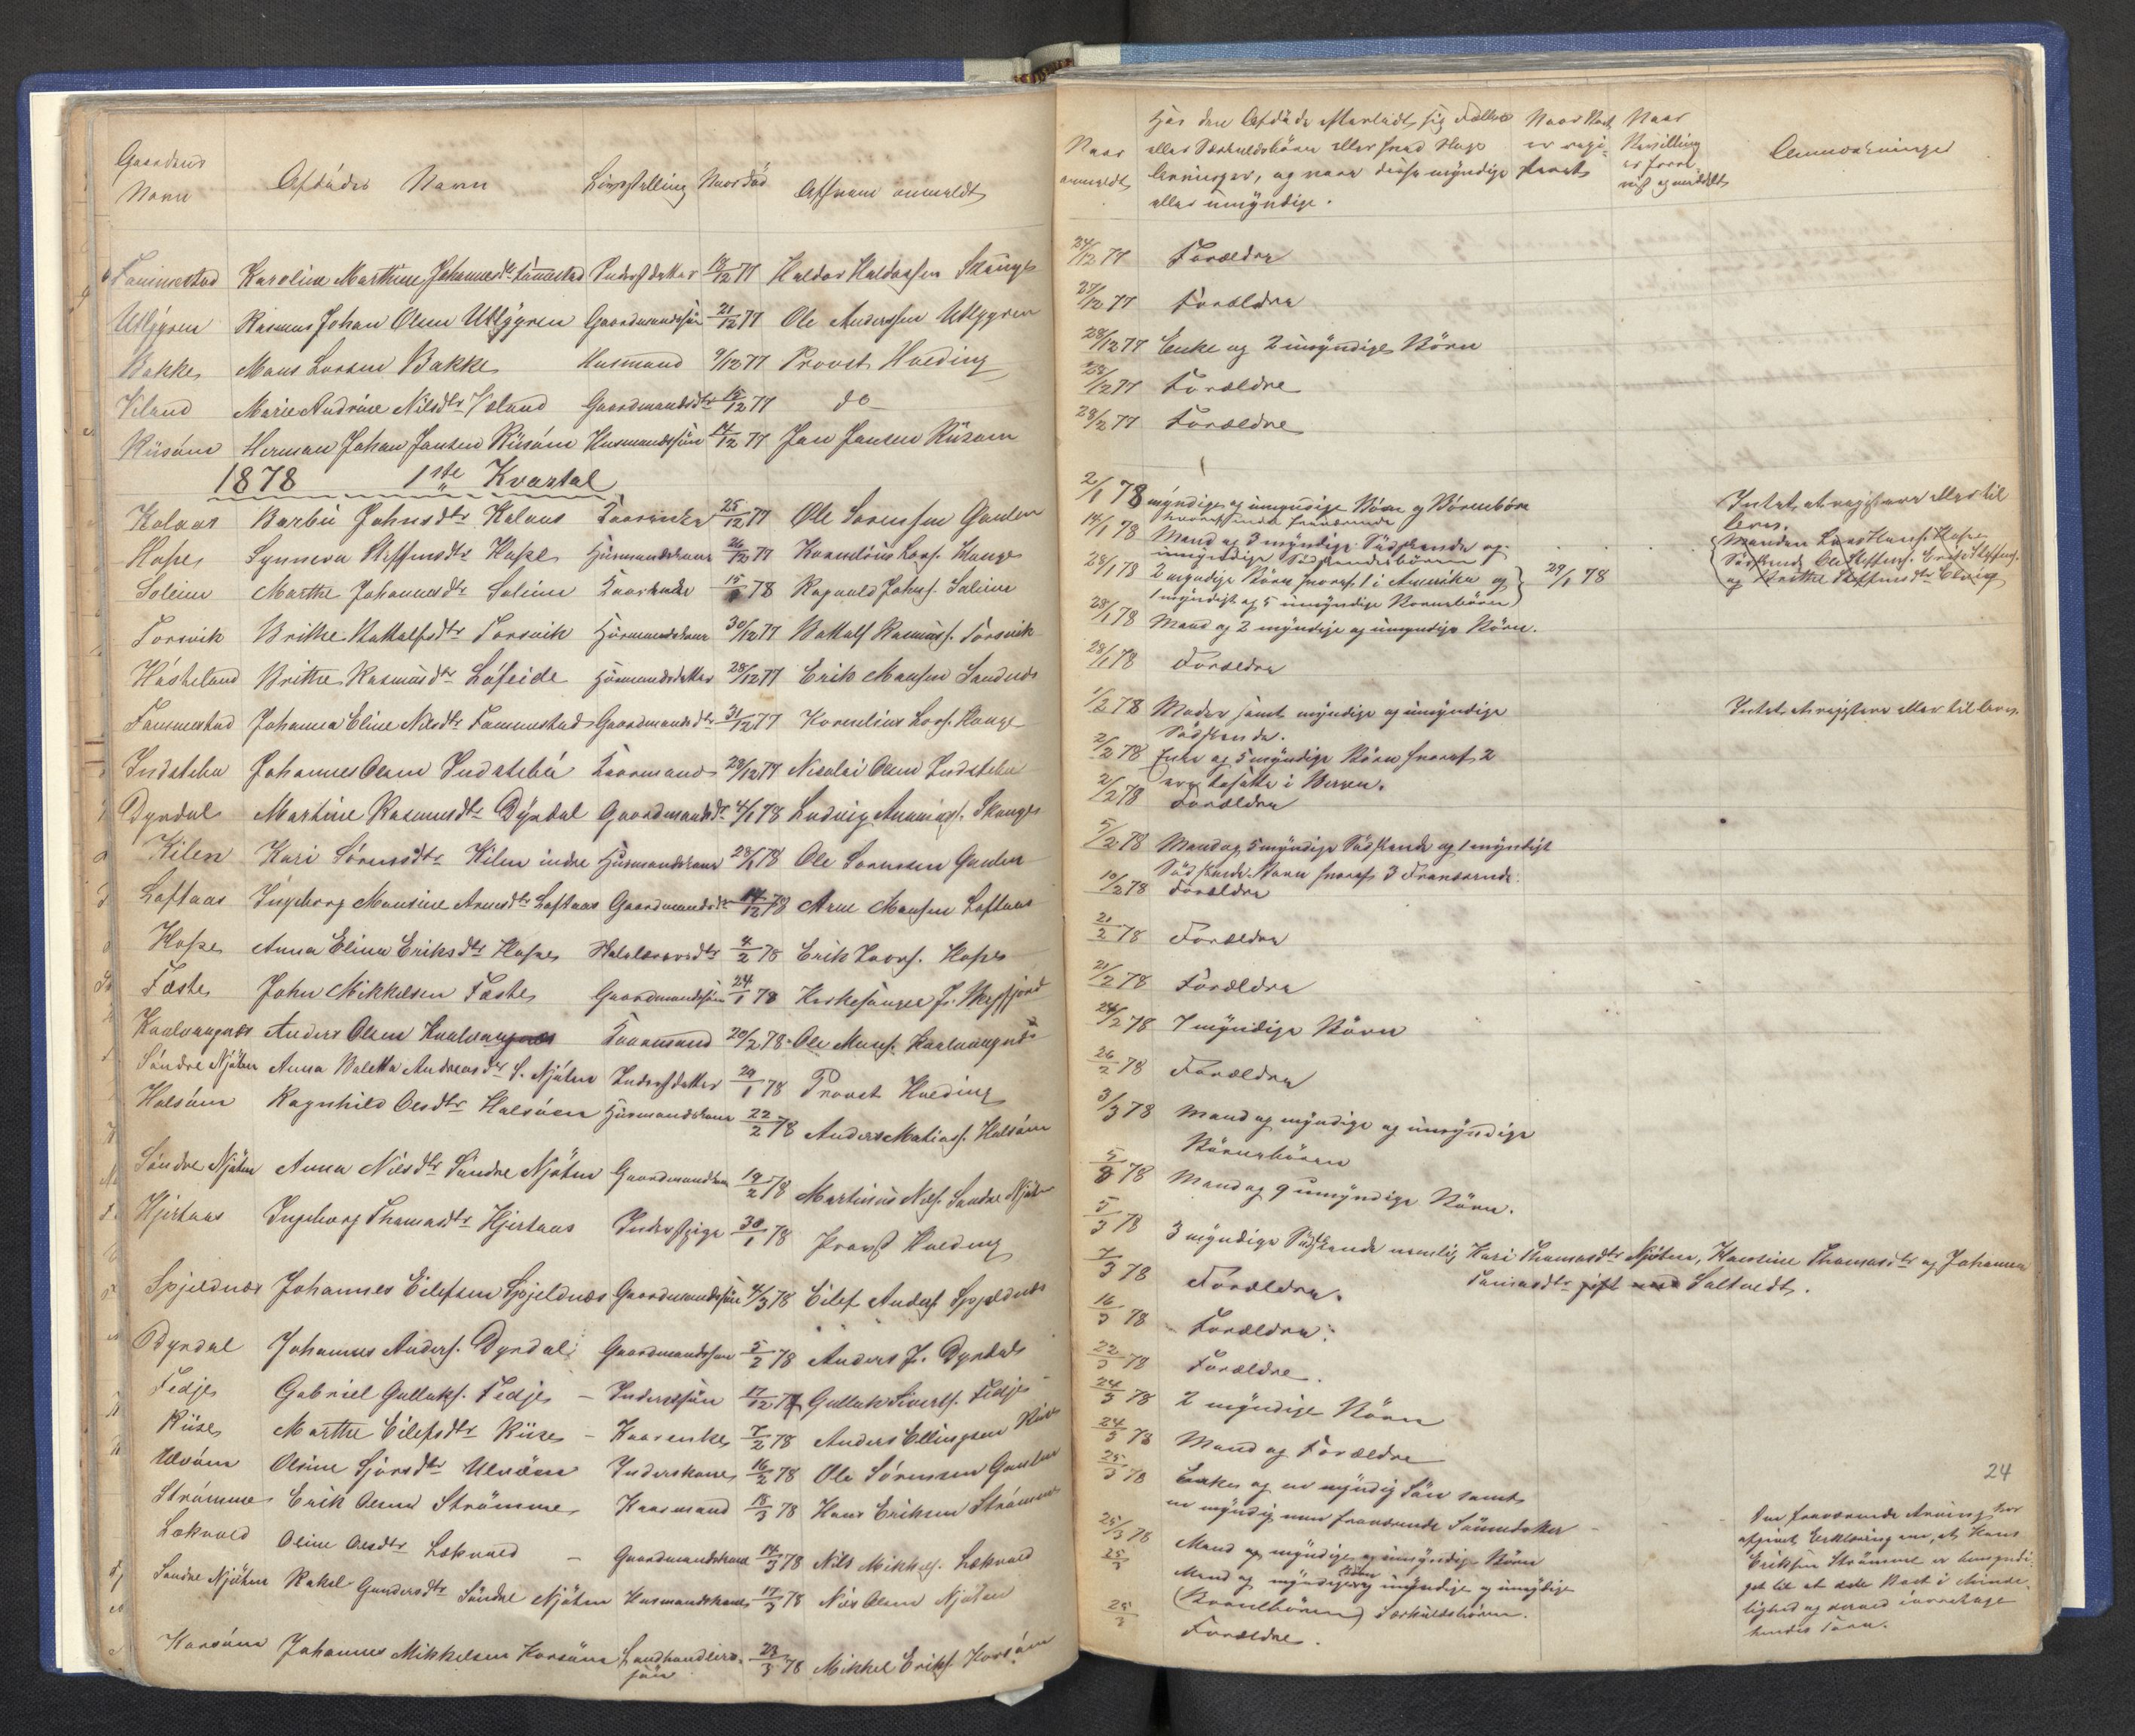 Gaardens
Navn
Afdødes Navn
Livsstilling
Naar død
Af hvem anmeldt
Fammestad Karoline Marthine Johannesdtr Fammestad Inderstdatter 18/12 77 Haldor Haldorsen Skauge
Utlgjøren Rasmus Johan Olsen Utlgjøren Gaardmandssøn 21/12 77 Ole Anderssen
Bakke Mons Larsen Bakke Husmand 9/12 77 Provst Hvoding
Marie Andrine Nilsdtr Gaardmandsdtr 18/12 77 do
Riisøen Herman Johan Jansen Riisøen Husmandssøn 14/12 77 Jan Jansen Riisøen
1878 1ste Kvartal
Kalaas Barbu Johnsdtr Kalaas Kaarenke 25/12 77 Ole Sørensen Ganten
Hope Synneva Steffensdtr Hope Husmandskone 26/12 77 Kornelius Lars. Hauge
Soleim Marthe Johannesdtr Soleim Kaarenke 15/1 78 Ragnald Johns. Soleim
Torsvik Brithe Rattalfsdtr Torsvik Husmandskone 30/12 77 Battalf Rasmuss. Torsvik
Hásteland Brithe Rasmusdtr Husmandsdatter 28/12 77 Erik Monsen Sandnes
Fammestad Johanna Eline Nilsdtr Fammestad Gaardmandsdtr 31/12 77 Kornelius Lars. Hauge
Indstebø Johannes Olsen Indstebø Kaarmand 29/12 77 Nicolai Olsen Indstebø
Dyrdal Martine Rasmusdtr Dyrdal Gaardmandsdtr 4/1 78 Ludvig Skauge
Kilen Kari Sørensdtr Kilen indre Husmandskone 28/1 78 Ole Sørensen Ganten
Loftaas Ingeborg Monsine Arnesdtr Loftaas Gaardmandsdtr 14/12 78 Arne Monsen Loftaas
Hope Anna Elina Eriksdtr Hope 4/2 78 Erik Lars. Hope
Fæste John Mikkelsen Fæste Gaardmandssøn 24/1 78 Kirkesanger
Kaalvaagnæs Anders Olsen Kaalvaagnæs Kaarmand 20/2 78 Ole Mons. Kaalvaagnæs
Søndre Njøten Anna Valetta Andreasdtr S. Njøten Inderstdatter 29/1 78 Provst Hvoding
Halsøen Ragnhild Olsdtr Halsøen Husmandskone 22/2 78 Anders Matias. Halsøen
Søndre Njøten Anna Nilsdtr Søndre Njøten Gaardmandskone 19/2 78 Martinus Nils. Søndre Njøten
Hjertaas Ingeborg Thomasdtr Hjertaas Inderstpige 30/1 78 Provst Hvoding
Spjeldnæs Johannes Eilefsen Spjeldnæs Gaardmandssøn 4/3 78 Eilef Anders. Spjeldnæs
Dyrdal Johannes Anders. Dyrdal Gaardmandssøn 5/2 78 Anders J. Dyrdal
Fedje Gabriel Gullaks. Fedje – Inderstsøn 17/12 77 Gullak Siverts. Fedje
Riise Marthe Eilefsdtr Riise – Kaarenke 7/2 78 Anders Ellingsen Riise
Ulvøen Olsine Sjørsdtr Ulvøen Inderskone 16/2 78 Ole Sørensen Ganten
Strømme Erik Olsen Strømme Kaarmand 18/3 78 Hans Eriksen Strømme
Lækvold Oline Olsdtr Lækvold – Gaardmandskone 14/3 78 Nils Mikkels. Lækvold
Søndre Njøten Rakel Gundersdtr Søndre Njøten Husmandskone 17/3 78 Nils Olsen Njøten
Korsøen Johannes Mikkelsen Korsøen Landhandlers-
søn 23/3 78 Mikkel Eriks. Korsøen
Naar
anmeldt
Har den Afdøde efterladt sig Fælles
eller Særkuldsbørn eller hvad Slags
Arvinger, og vare disse myndige
eller umyndige.
Naar Boet
er regi-
streret
Naar
Bevilling
er
Anmærkninger
24/12 77 Forældre
27/12 77 Forældre
28/12 77 Enke og 2 umyndige Børn
28/12 77 Forældre
28/12 77 Forældre
2/1 78 myndige og umyndige Børn og Børnebørn
fraværende
Intet at registrere eller til-
leves.
14/1 78 Mand og 3 myndige Sødskende og
umyndige Sødskendebørn
Manden Lars Hans. Hope
Sødskende Ole Steffens. Erik Steffens.
og Brithe Steffensdtr
28/1 78 2 myndige Børn hvoraf 1 i Amerika og
1 myndigt og 5 umyndige Børnebørn
29/1 78
28/1 78 Mand og 2 myndige og umyndige Børn.
28/1 78 Forældre
1/2 78 Moder samt myndige og umyndige
Sødskende.
Intet at registrere eller tilleves.
2/2 78 Enke og 5 myndige Børn hvoraf 2
ere bosatte i Bergen.
2/2 78 Forældre
5/2 78 Mand og 5 myndige Sødskende og 1 myndigt
Sødskende Barn hvoraf 3 Fraværende.
10/2 78 Forældre
21/2 78 Forældre
21/2 78 Forældre
24/2 78 7 myndige Børn
26/2 78 Forældre
3/3 78 Mand og myndige og umyndige
Børnebørn
5/3 78 Mand og 9 umyndige Børn.
5/3 78 3 myndige Sødskende nemlig Kari Thomasdtr Njøten, Karoline Thomasdtr og Johanna
Tomasdtr gift med Saltvedt.
7/3 78 Forældre.
16/3 78 Forældre.
22/3 78 Forældre.
24/3 78 2 myndige Børn
24/3 78 Mand og Forældre
25/3 78 Enke og en myndig Søn samt
en myndig men fraværende Sønnedatter
Den fraværende Arving har
afgivet Erklæring om, at Hans
Eriksen Strømme er bemyndi-
get til at dele Boet i Minde-
lighed og derved ivaretage
hendes Tarv.
25/3 78 Mand og myndige og umyndige Børn
25/3 Mand og myndige og umyndige
(Børnebørn) Særkuldsbørn.
25/3 Forældre.
24